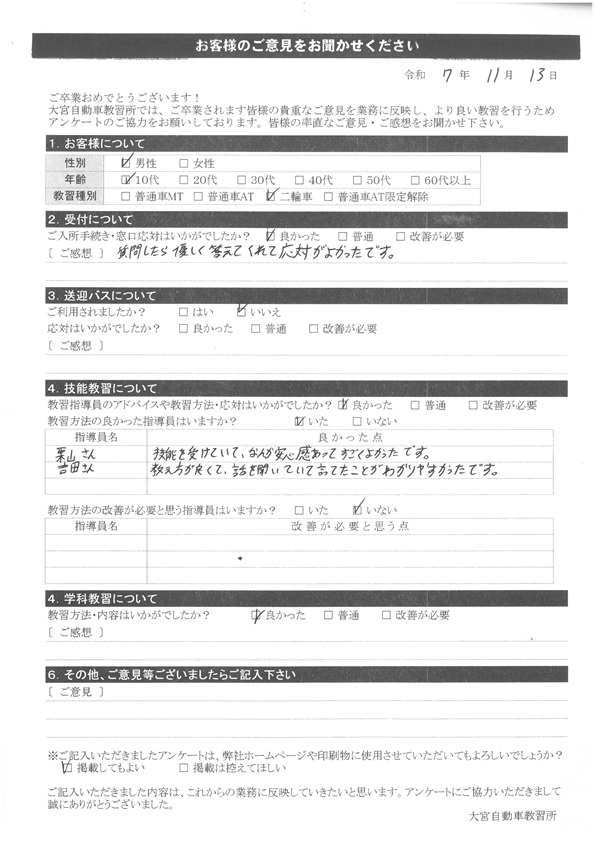 お客様のご意見をお聞かせください
令和 7 年 11 月 13 日
ご卒業おめでとうございます！
大宮自動車教習所では、ご卒業されます皆様の貴重なご意見を業務に反映し、より良い教習を行うため
アンケートのご協力をお願いしております。皆様の率直なご意見・ご感想をお聞かせ下さい。
1. お客様について
性別 ☑ 男性 □ 女性
年齢 ☑ 10代 □ 20代 □ 30代 □ 40代 □ 50代 □ 60代以上
教習種別 □ 普通車MT □ 普通車AT ☑ 二輪車 □ 普通車AT限定解除
2. 受付について
ご入所手続き・窓口応対はいかがでしたか？ ☑ 良かった □ 普通 □ 改善が必要
〔 ご感想 〕 質問したら優しく答えてくれて応対がよかったです。
3. 送迎バスについて
ご利用されましたか？ □ はい ☑ いいえ
応対はいかがでしたか？ □ 良かった □ 普通 □ 改善が必要
〔 ご感想 〕
4. 技能教習について
教習指導員のアドバイスや教習方法・応対はいかがでしたか？ ☑ 良かった □ 普通 □ 改善が必要
教習方法の良かった指導員はいますか？ ☑ いた □ いない
指導員名 良かった点
栗山さん 技能を受けていて、なんか安心感あってすごくよかったです。
吉田さん 教え方が良くて、話を聞いていて言ってたことがわかりやすかったです。
教習方法の改善が必要と思う指導員はいますか？ □ いた ☑ いない
指導員名 改善が必要と思う点
4. 学科教習について
教習方法・内容はいかがでしたか？ ☑ 良かった □ 普通 □ 改善が必要
〔 ご感想 〕
6. その他、ご意見等ございましたらご記入下さい
〔 ご意見 〕
※ご記入いただきましたアンケートは、弊社ホームページや印刷物に使用させていただいてもよろしいでしょうか？
☑ 掲載してもよい □ 掲載は控えてほしい
ご記入いただきました内容は、これからの業務に反映していきたいと思います。アンケートにご協力いただきまして
誠にありがとうございました。
大宮自動車教習所